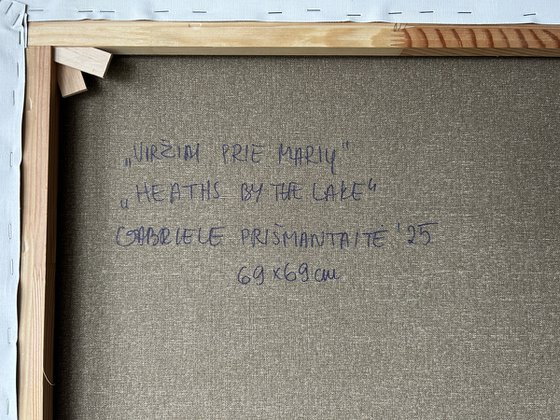 „VIRŽIAI PRIE MARIŲ"
„HEATHS BY THE LAKE"
GABRIELE PRISMANTAITE '25
69x69 cm